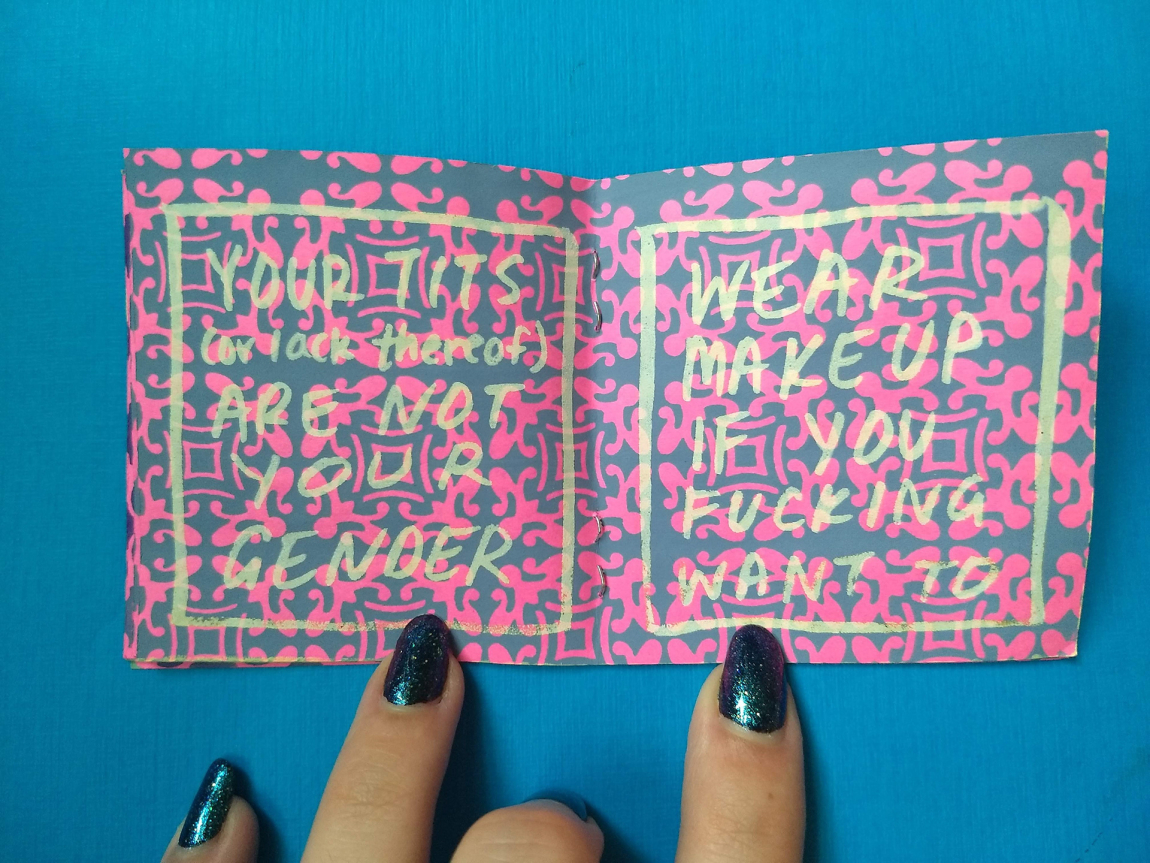 YOUR TITS
(or lack thereof)
ARE NOT
YOUR
GENDER
WEAR
MAKEUP
IF YOU
FUCKING
WANT TO